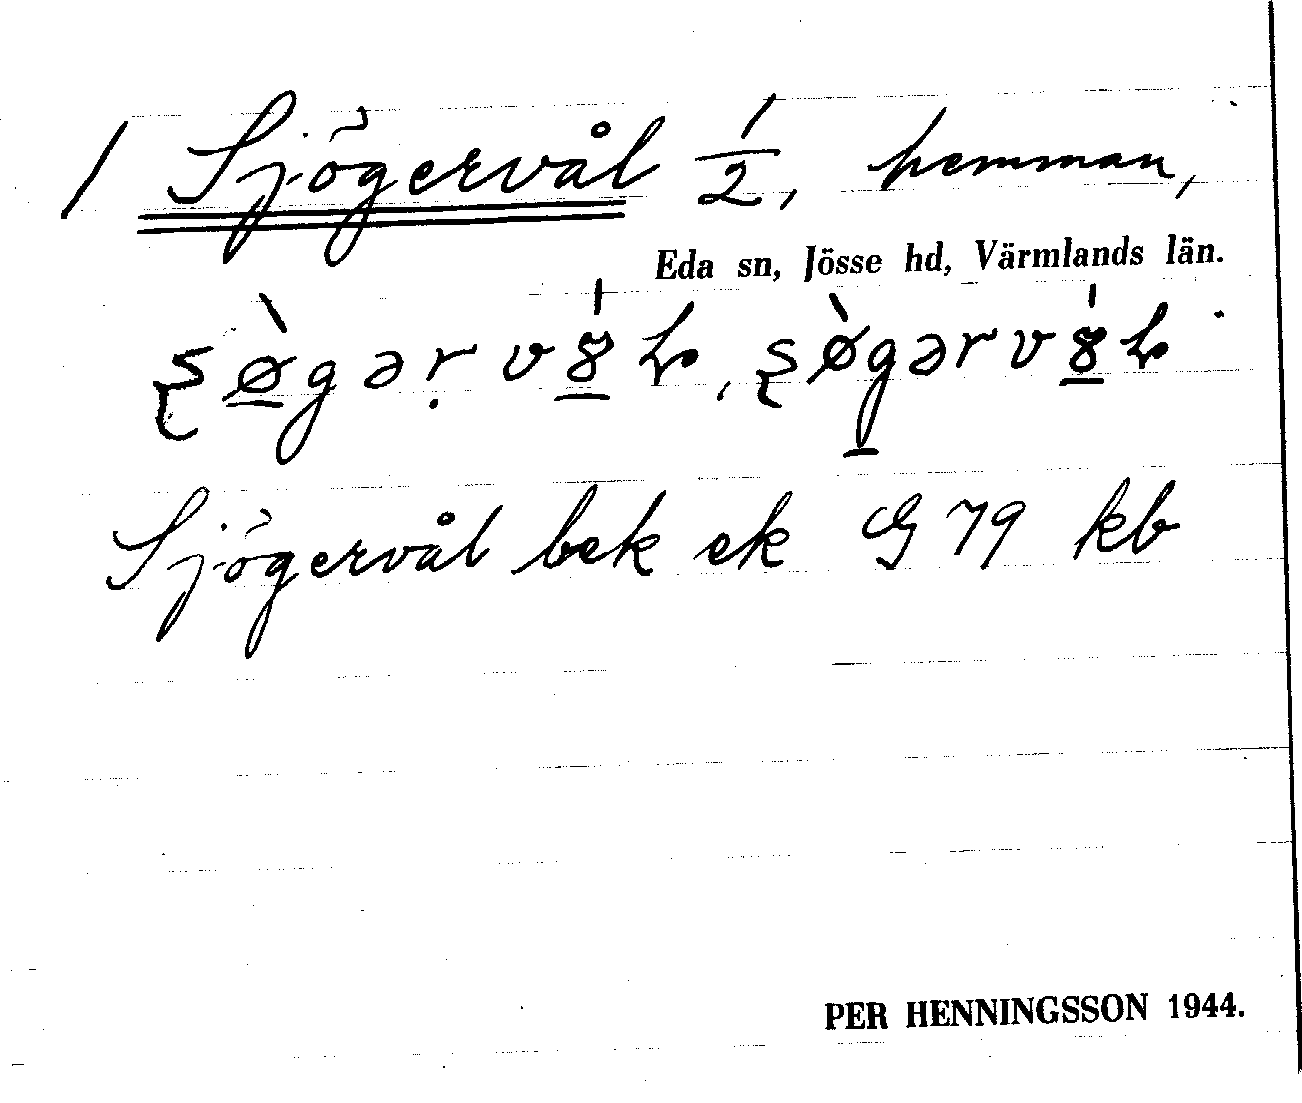 1 Sjögervål 1/2, hemman,
Eda sn, Jösse hd, Värmlands län.
Sjögervål bek ek G 79 kb
PER HENNINGSSON 1944.